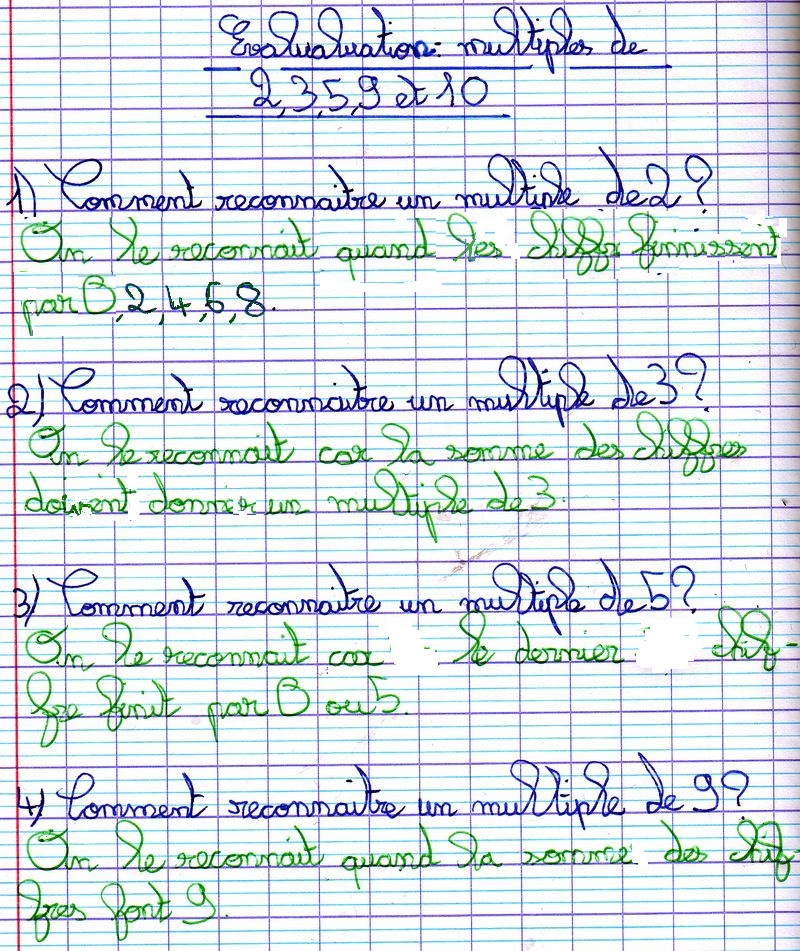 Evalualuation: multiples de
2, 3, 5, 9 et 10
1) Comment reconnaitre un multiple de 2 ?
On le reconnait quand les chiffr finnissent
par 0, 2, 4, 6, 8.
2) Comment reconnaitre un multiple de 3 ?
On le reconnait car la somme des chiffres
doivent donner un multiple de 3.
3) Comment reconnaitre un multiple de 5 ?
On le reconnait car le dernier chif-
fre finit par 0 ou 5.
4) Comment reconnaitre un multiple de 9 ?
On le reconnait quand la somme des chif-
fres font 9.